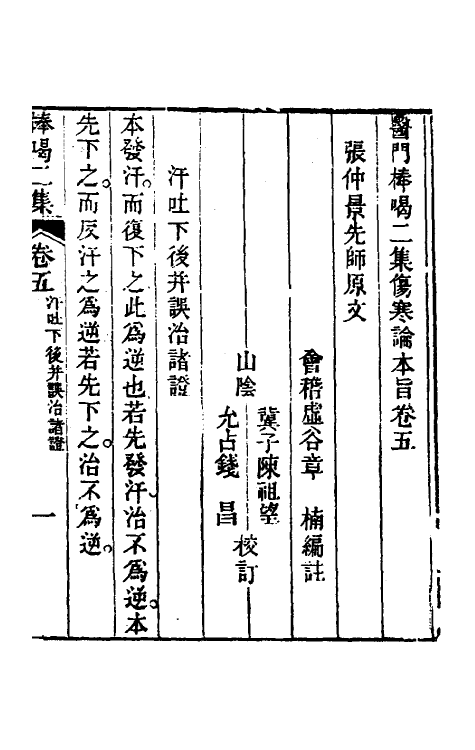 醫門棒喝二集傷寒論本旨卷五
張仲景先師原文
會稽虛谷章　楠編註
山陰
冀子陳祖望
允占錢　昌
校訂
汗吐下後并誤治諸證
本發汗。而復下之此爲逆也若先發汗治不爲逆。本
先下之。而反汗之爲逆若先下之。治不爲逆。
棒喝二集　卷五　汗吐下後并誤治諸證　一